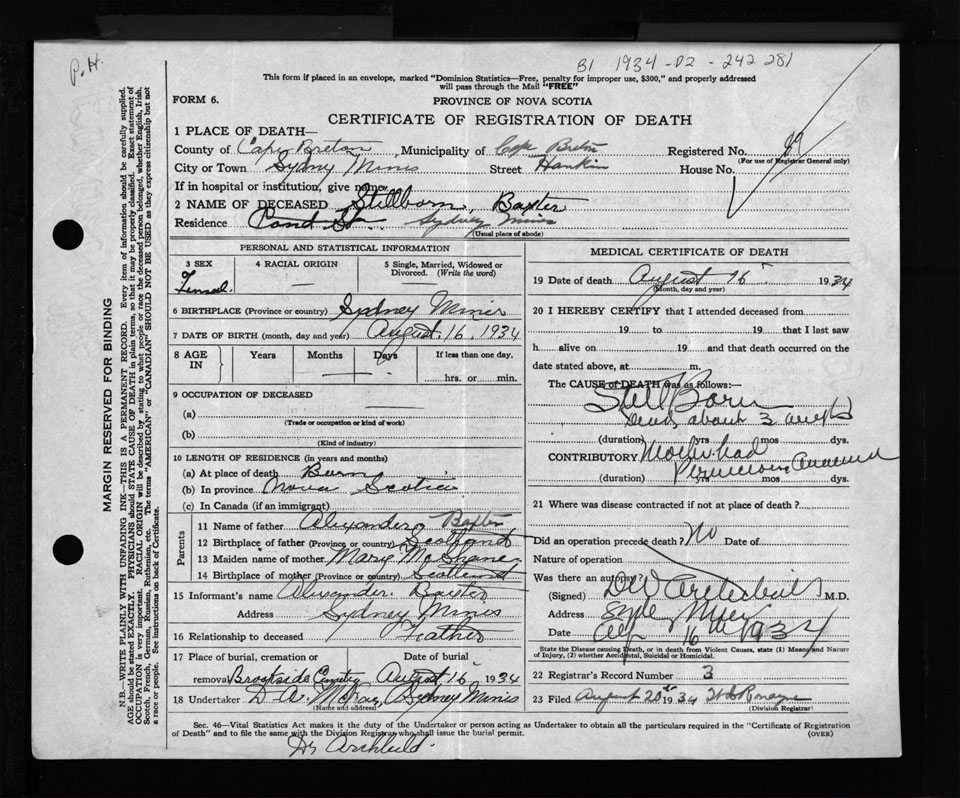 P. H.
B1 1934-02-242 281
This form if placed in an envelope, marked "Dominion Statistics—Free, penalty for improper use, $300," and properly addressed
will pass through the Mail "FREE"
FORM 6.
PROVINCE OF NOVA SCOTIA
CERTIFICATE OF REGISTRATION OF DEATH
1 PLACE OF DEATH—
County of Cape Breton Municipality of Cape Breton Registered No.
(For use of Registrar General only)
City or Town Sydney Mines Street Hankin House No.
If in hospital or institution, give name
2 NAME OF DECEASED Stillborn Baxter
Residence Pond St. Sydney Mines
(Usual place of abode)
PERSONAL AND STATISTICAL INFORMATION
3 SEX 4 RACIAL ORIGIN 5 Single, Married, Widowed or Divorced. (Write the word)
— —
6 BIRTHPLACE (Province or country) Sydney Mines
7 DATE OF BIRTH (month, day and year) August 16, 1934
8 AGE IN Years Months Days If less than one day,
hrs. or min.
9 OCCUPATION OF DECEASED
(a)
(Trade or occupation or kind of work)
(b)
(Kind of industry)
10 LENGTH OF RESIDENCE (in years and months)
(a) At place of death Born
(b) In province Nova Scotia
(c) In Canada (if an immigrant)
Parents
11 Name of father Alexander Baxter
12 Birthplace of father (Province or country) Scotland
13 Maiden name of mother Mary McShane
14 Birthplace of mother (Province or country) Scotland
15 Informant's name Alexander Baxter
Address Sydney Mines
16 Relationship to deceased Father
17 Place of burial, cremation or Date of burial
removal Brookside Cemetery August 16, 1934
18 Undertaker D. A. McKay Sydney Mines
(Name and address)
MEDICAL CERTIFICATE OF DEATH
19 Date of death August 16 1934
(Month, day and year)
20 I HEREBY CERTIFY that I attended deceased from
19 to 19 that I last saw
h alive on 19 and that death occurred on the
date stated above, at m.
The CAUSE OF DEATH was as follows:—
Still Born
Dead about 3 weeks
(duration) yrs mos dys.
CONTRIBUTORY Mother had
Pernicious Anaemia
(duration) yrs mos dys.
21 Where was disease contracted if not at place of death?
Did an operation precede death? No Date of
Nature of operation
Was there an autopsy?
(Signed) D W Archibald M.D.
Address Syd Mines
Date Aug 16th 1934
State the Disease Causing Death, or in death from Violent Causes, state (1) Means and Nature
of Injury, (2) whether Accidental, Suicidal or Homicidal.
22 Registrar's Record Number 3
23 Filed August 20th 1934
(Division Registrar)
Sec. 46—Vital Statistics Act makes it the duty of the Undertaker or person acting as Undertaker to obtain all the particulars required in the "Certificate of Registration
of Death" and to file the same with the Division Registrar who shall issue the burial permit. (OVER)
Dr Archibald.
MARGIN RESERVED FOR BINDING
N.B.—WRITE PLAINLY WITH UNFADING INK—THIS IS A PERMANENT RECORD. Every item of information should be carefully supplied.
AGE should be stated EXACTLY. PHYSICIANS should STATE CAUSE OF DEATH in plain terms, so that it may be properly classified. Exact statement of
OCCUPATION is very important. RACIAL ORIGIN will be described by stating to what people or race the deceased person belonged, whether English, Irish,
Scotch, French, German, Russian, Ruthenian, etc. The terms "AMERICAN" or "CANADIAN" SHOULD NOT BE USED as they express citizenship but not
a race or people. See instructions on back of Certificate.